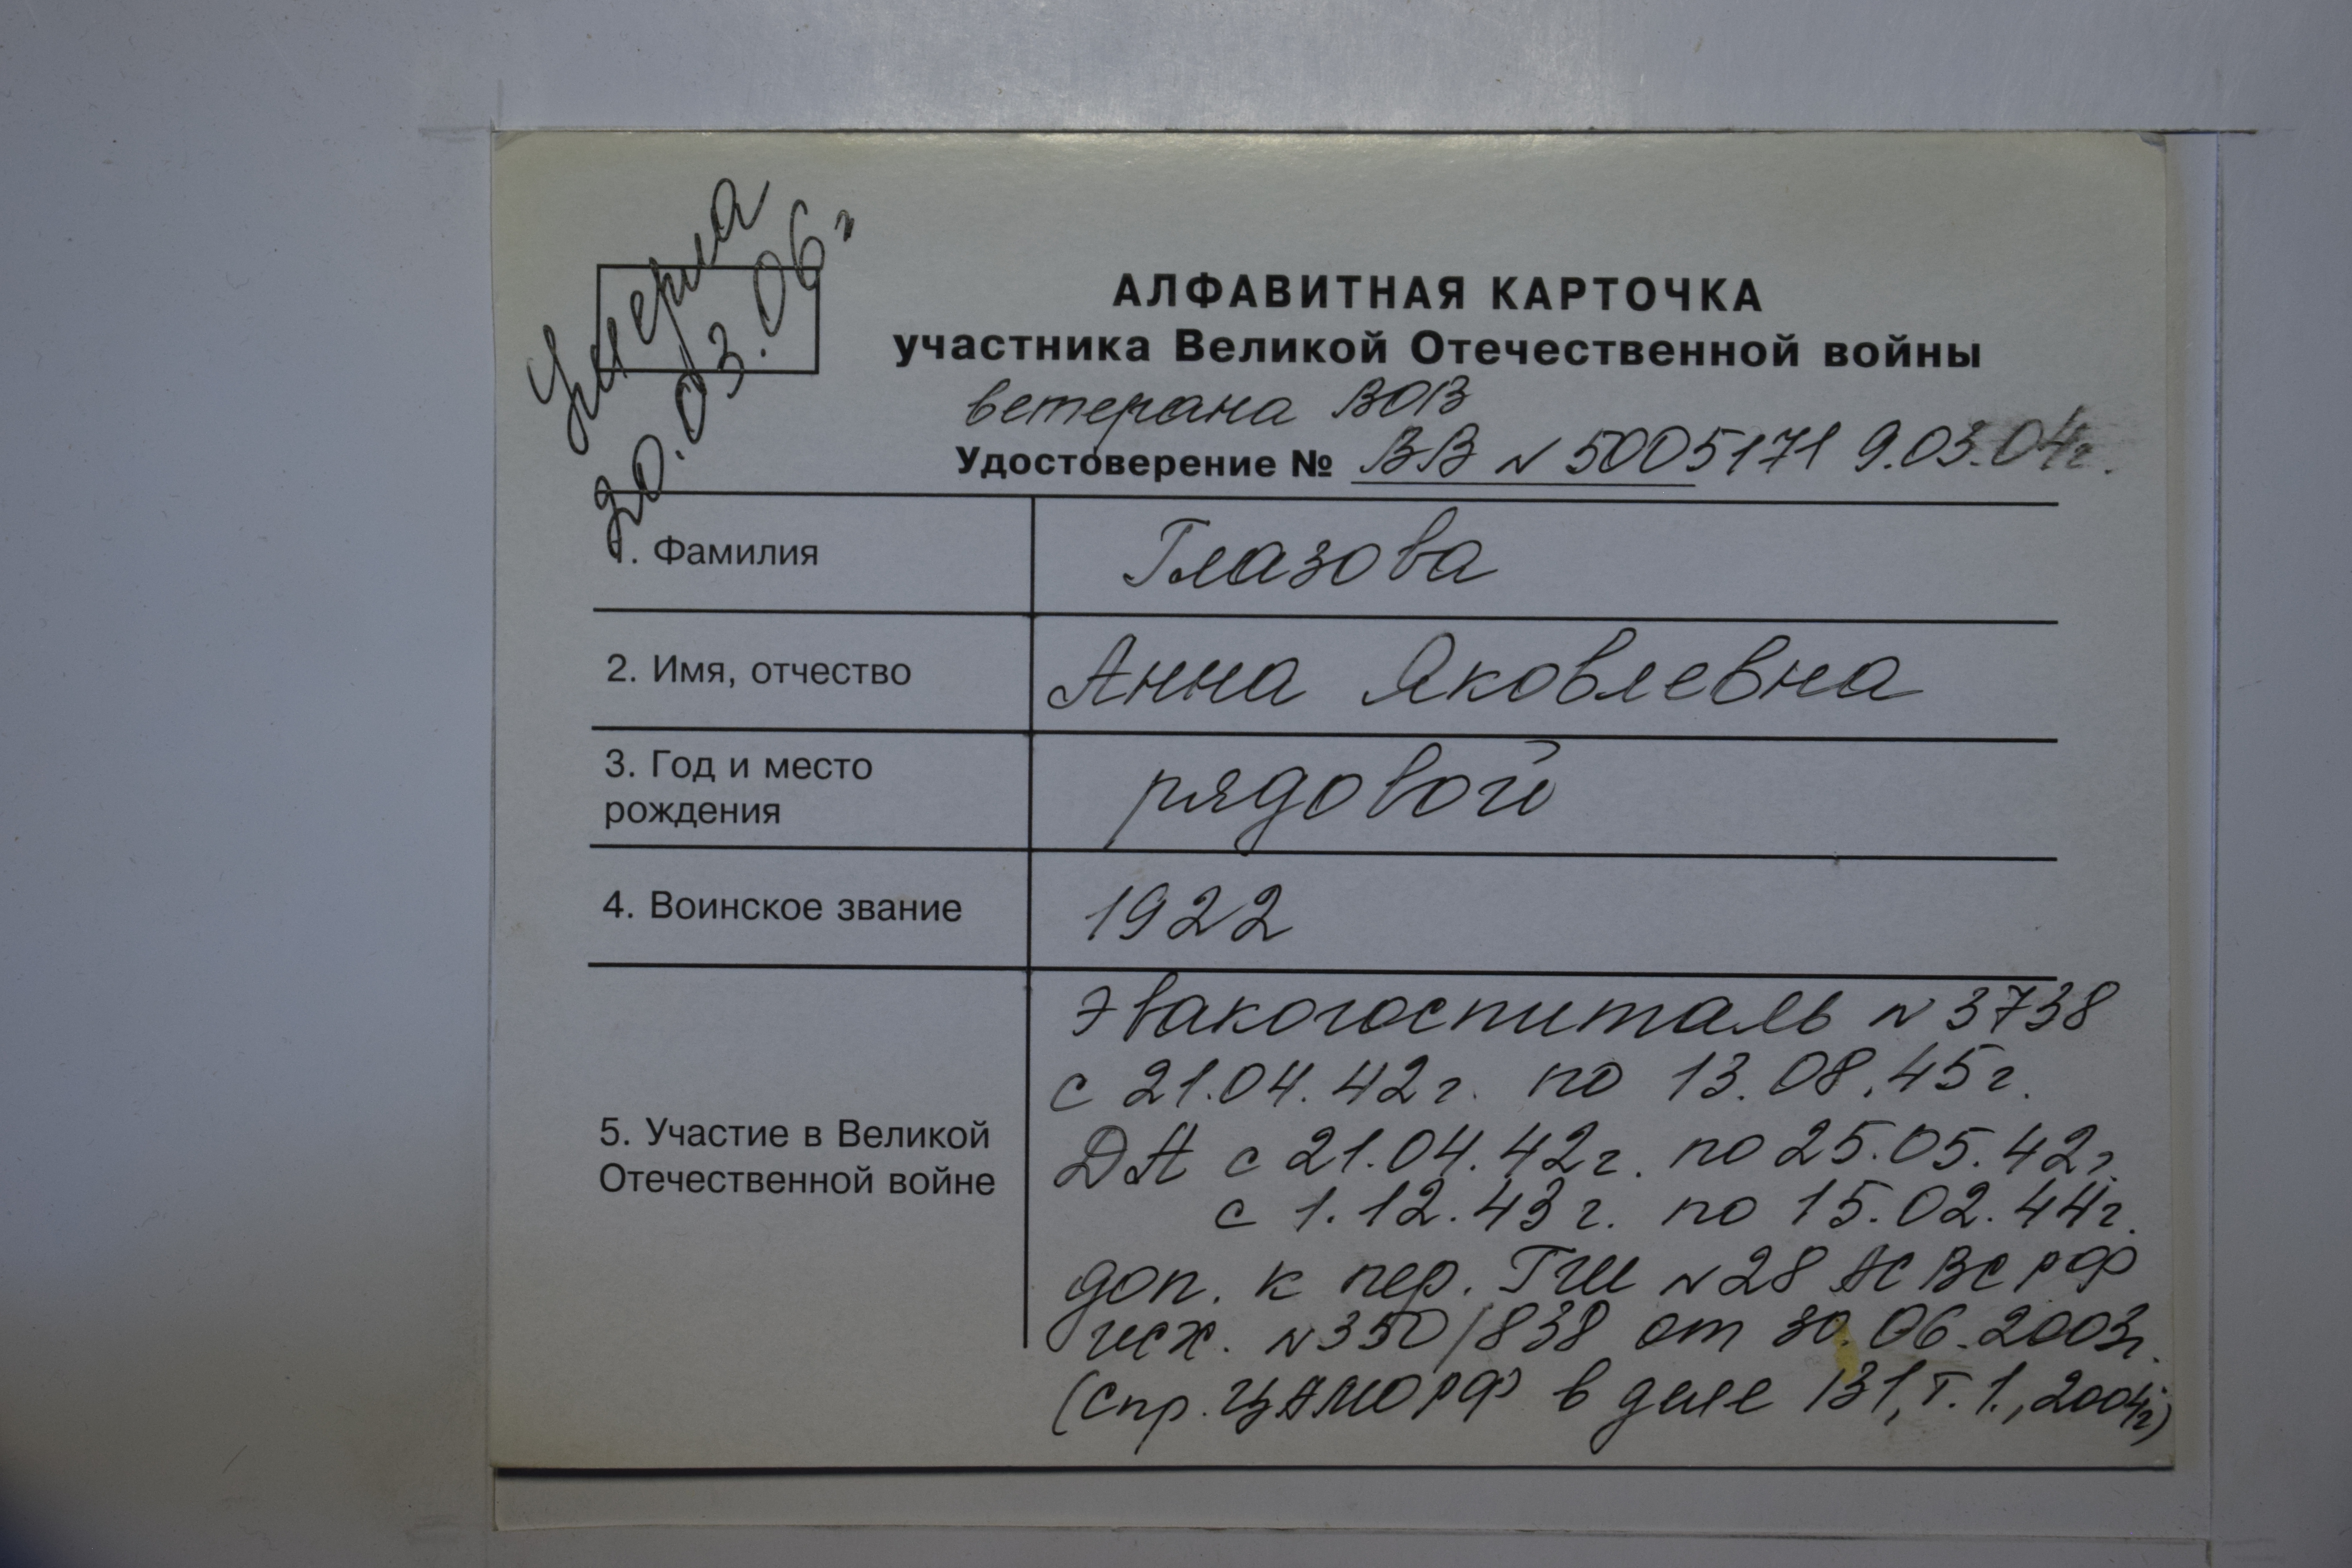 Умерла
30.03.06г
АЛФАВИТНАЯ КАРТОЧКА
участника Великой Отечественной войны
ветерана ВОВ
Удостоверение № ВВ № 5005171 9.03.04г.
1. Фамилия Глазова
2. Имя, отчество Анна Яковлевна
3. Год и место
рождения
рядовой
4. Воинское звание 1922
5. Участие в Великой
Отечественной войне
Эвакогоспиталь № 3738
с 21.04.42г. по 13.08.45г.
ДА с 21.04.42г. по 25.05.42г.
с 1.12.43г. по 15.02.44г.
доп. к пер. ГШ № 28 АС ВС РФ
исх. № 350/838 от 30.06.2003г.
(спр. ЦАМО РФ в деле 131, т. 1., 2004г)